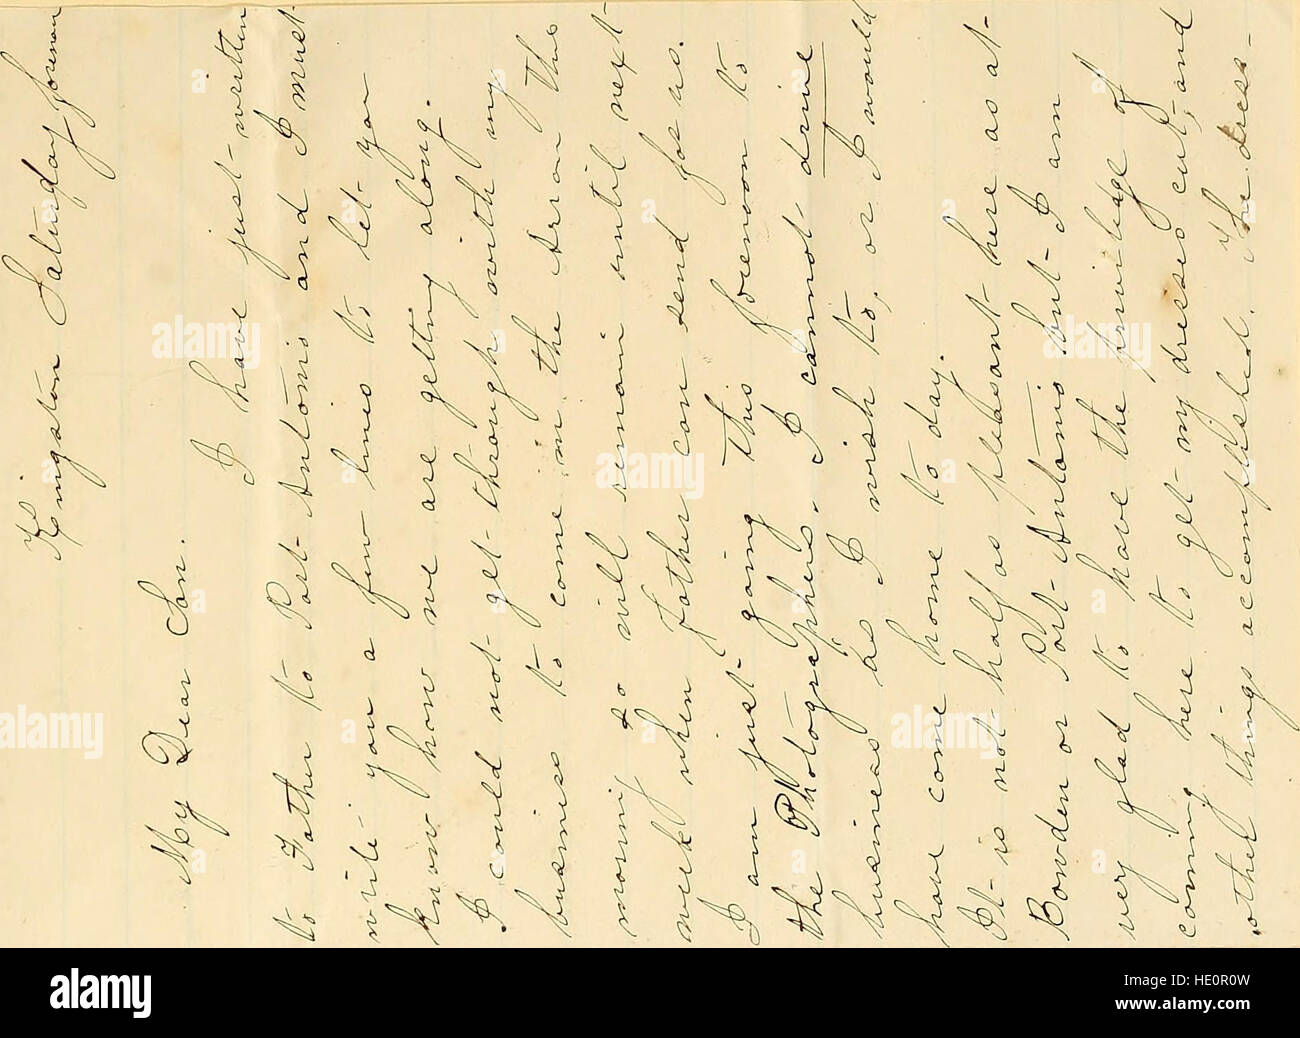 Kingston Saturday forenoon
My Dear Son.
I have just written
to Father to Port-Antonio and I must
write you a few lines to let you
know how we are getting along.
I could not get through with my
business to come in the Arron this
morning & so will remain until next
week when Father can send for us.
I am just going this forenoon to
the Photographers. I cannot drive
business as I wish to, or I would
have come home to day.
It is not half as pleasant here as at
Bowden or Port-Antonio but I am
very glad to have the privilege of
coming here to get my dresses cut, and
other things accomplished. The dress-
alamy
alamy
alamy
alamy
alamy
alamy
alamy
Image ID: HE0R0W
www.alamy.com